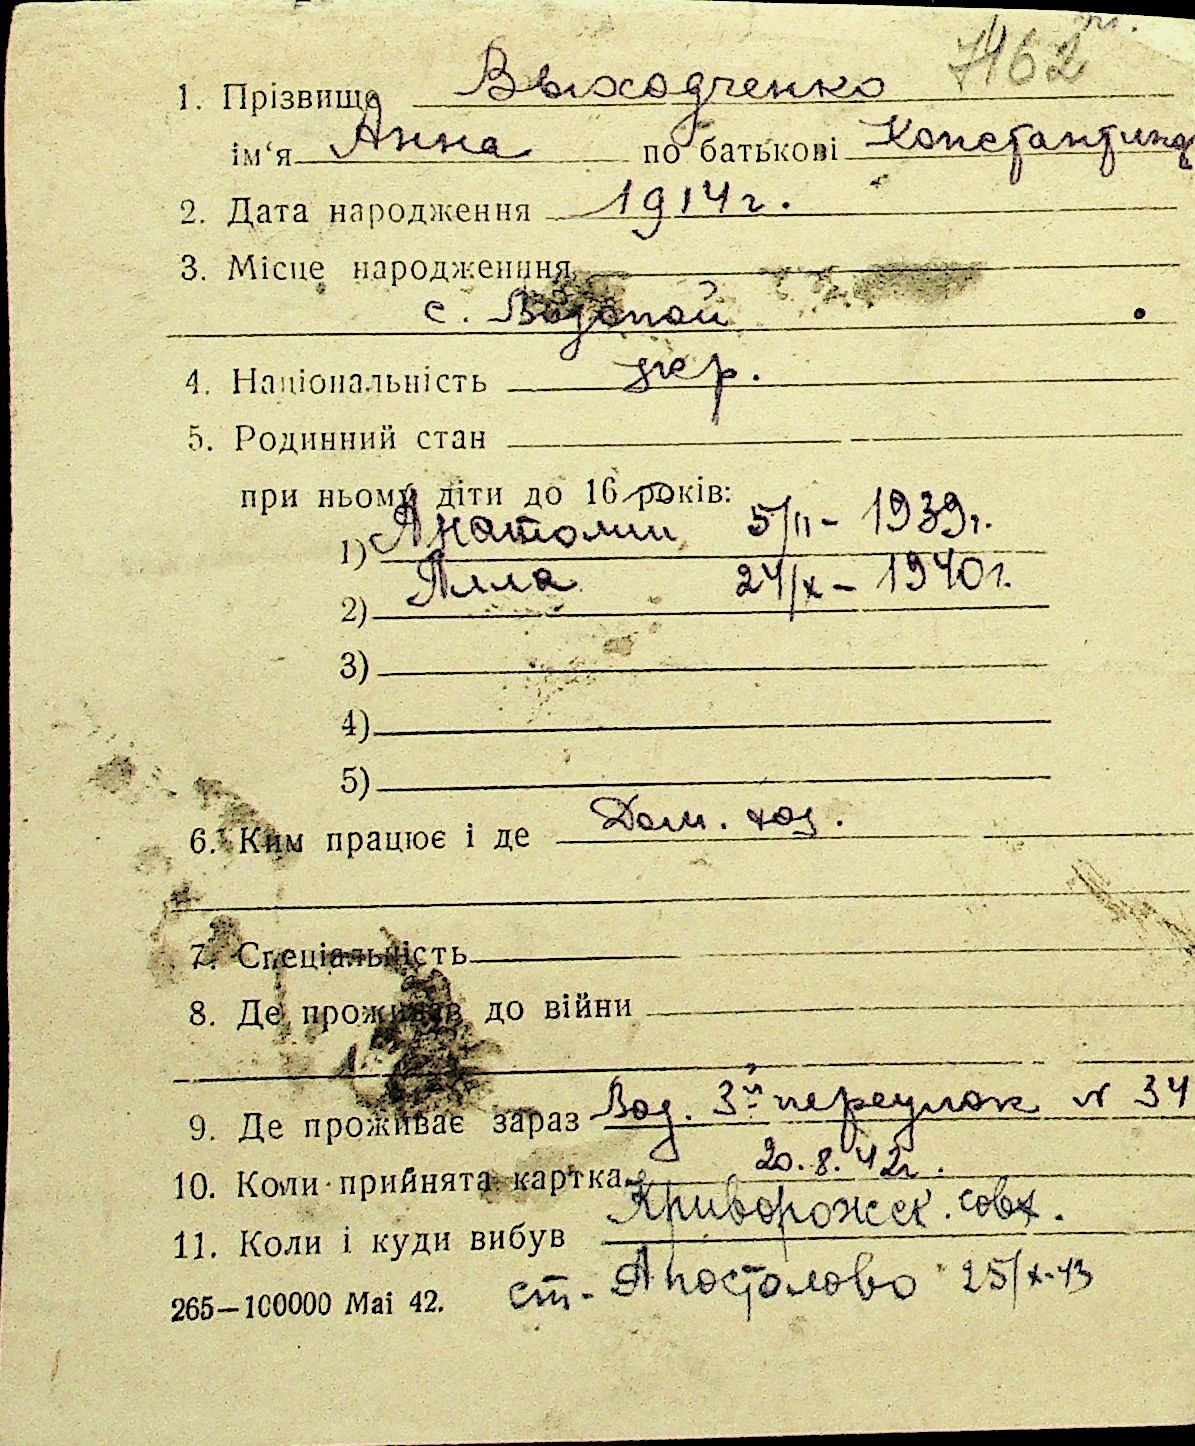 7462
1. Прізвище Выходченко
ім‘я Анна по батькові Константинов
2. Дата народження 1914 г.
3. Місце народженння
с. Водопой
4. Національність укр.
5. Родинний стан
при ньому діти до 16 років:
1) Анатолий 5/II – 1939 г.
2) Алла 24/X – 1940 г.
3)
4)
5)
6. Ким працює і де Дом. хоз.
7. Спеціальність
8. Де проживав до війни
9. Де проживає зараз Вод. 3й переулок № 34
10. Коли прийнята картка 20.8.42 г.
Криворожск. совх.
11. Коли і куди вибув
265—100000 Mai 42. ст. Апостолово 25/X-43